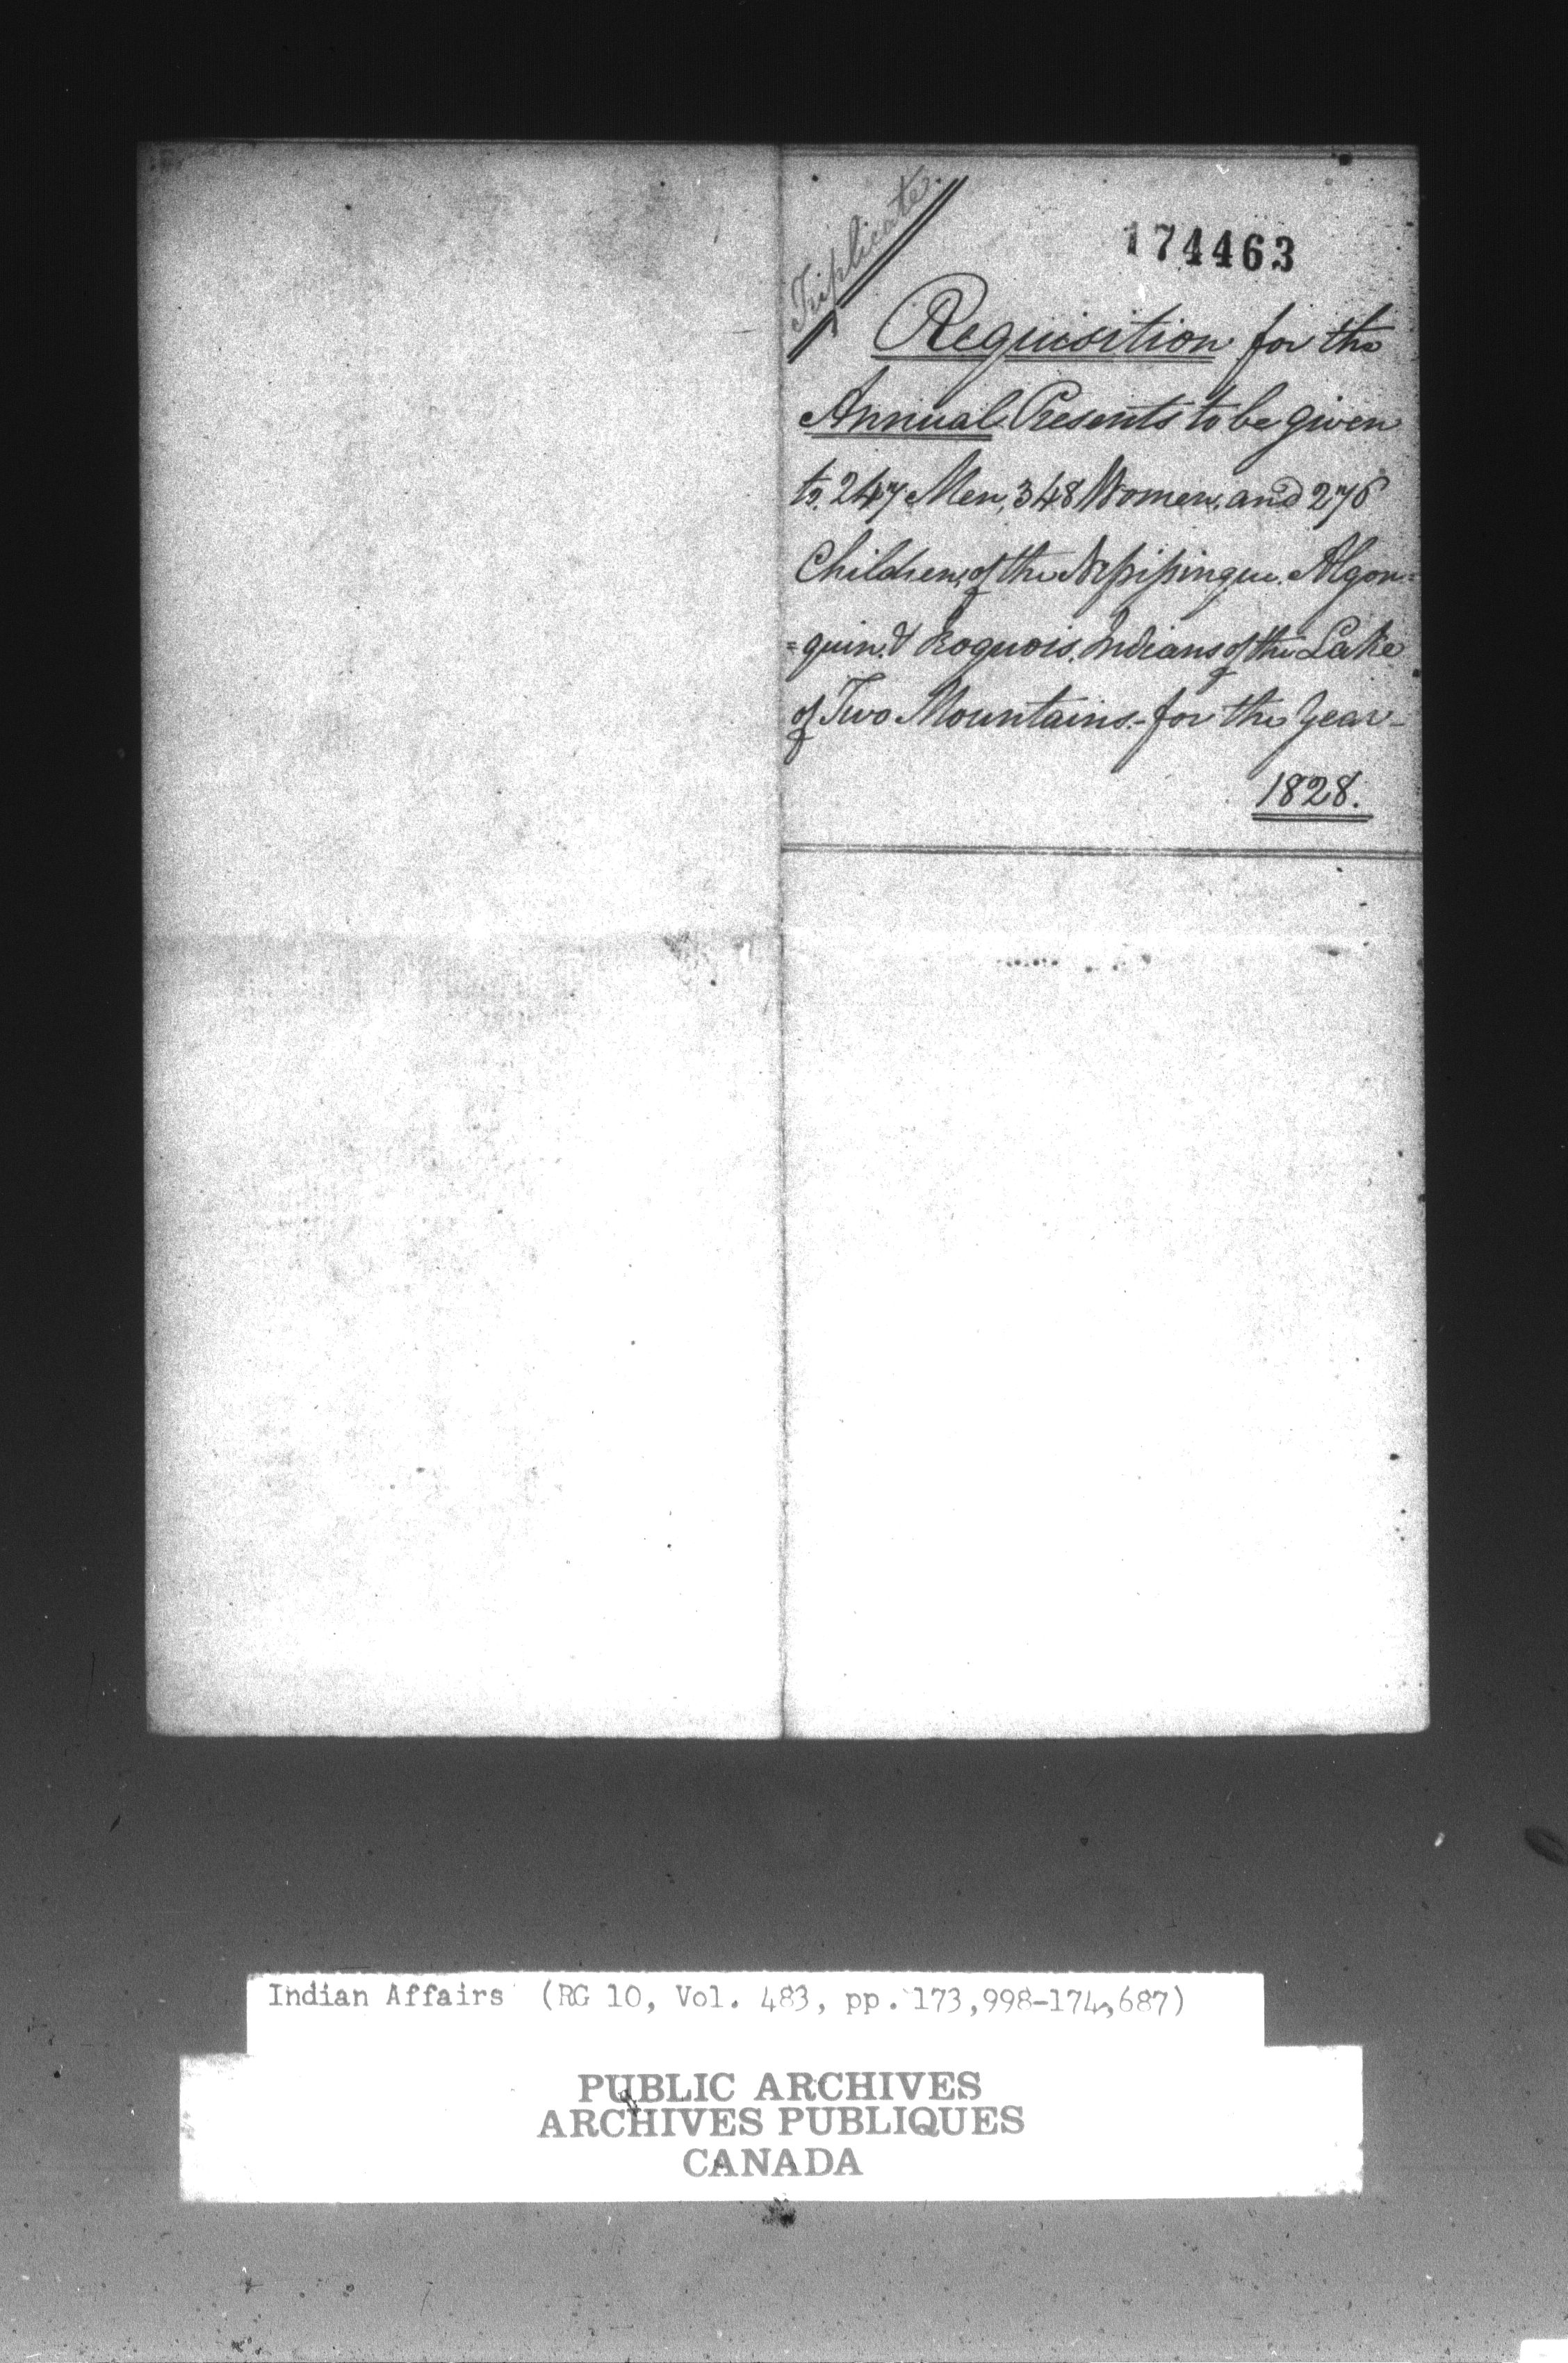 Triplicate.
174463
Requisition for the
Annual Presents to be given
to 247 Men, 348 Women, and 276
Children, of the Nipissingue. Algon=
=quin. & Iroquois. Indians of the Lake
of Two Mountains.- for the Year-
1828.
Indian Affairs (RG 10, Vol. 483, pp. 173,998-174,687)
PUBLIC ARCHIVES
ARCHIVES PUBLIQUES
CANADA